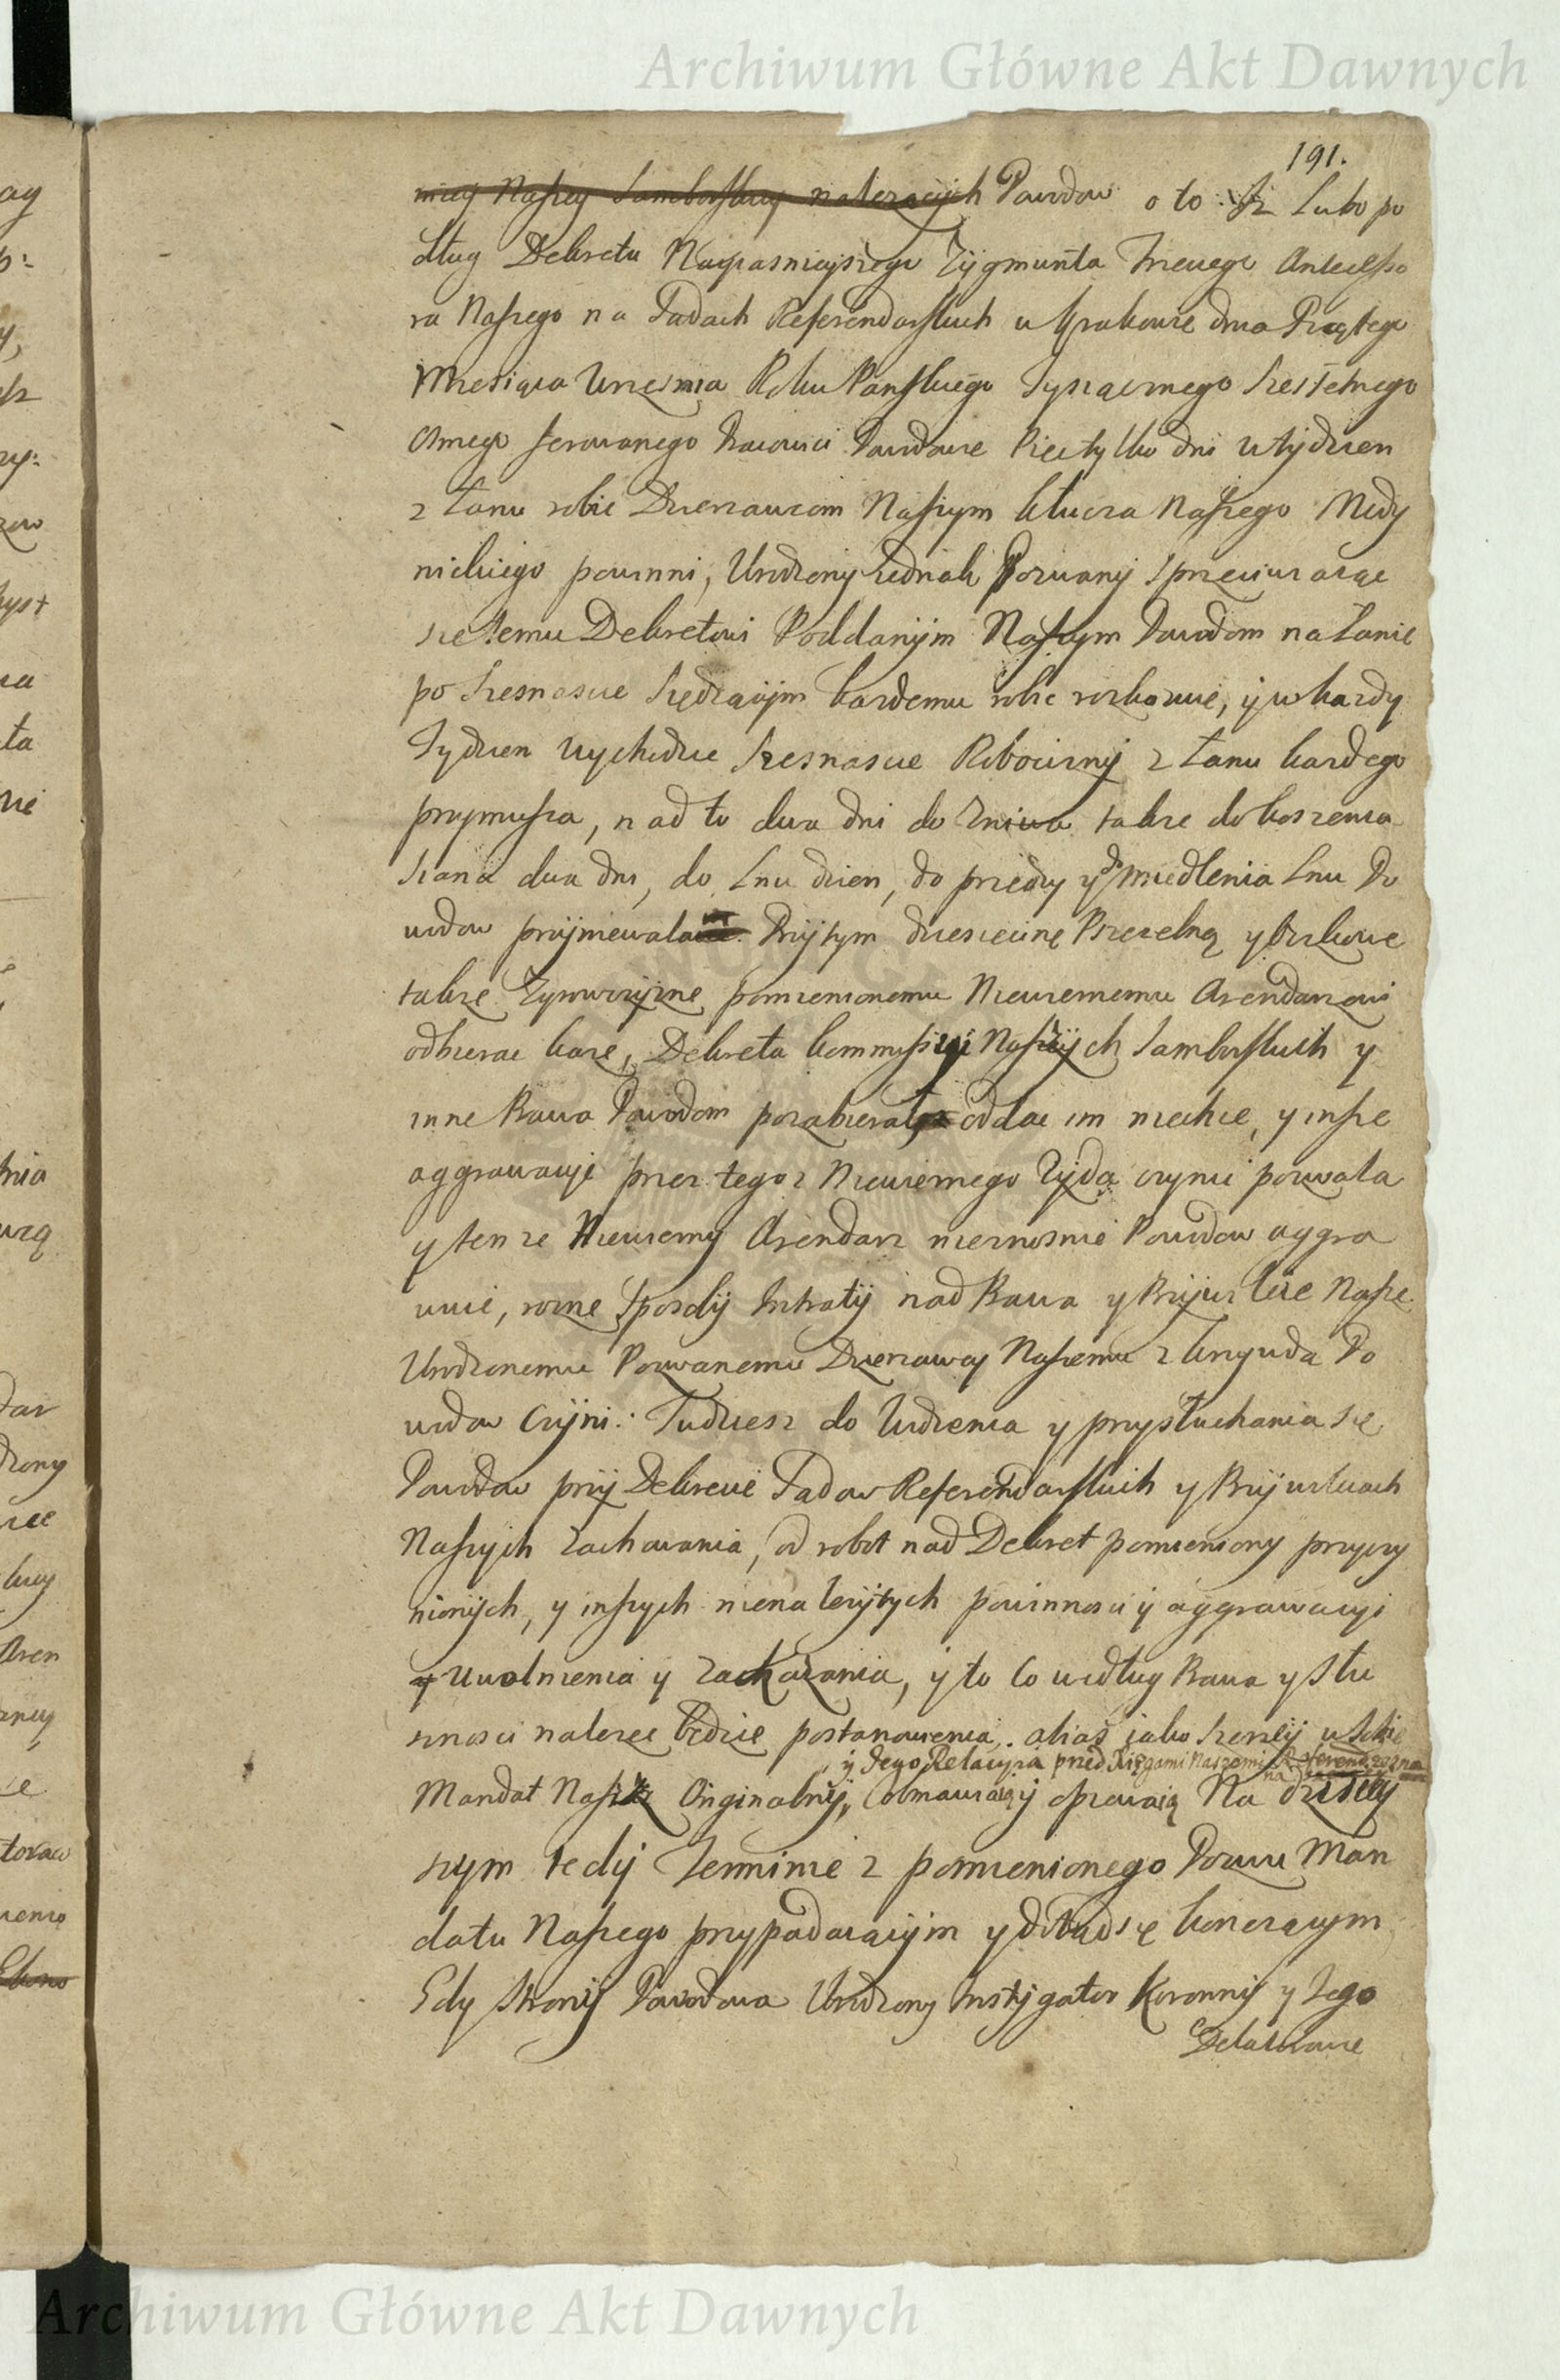 Archiwum Główne Akt Dawnych
191.
miey Naszey Samborskiey należących Powodow o to Iż Lubo po
dług Dekretu Nayiasnieyszego Zygmunta Trzeciego Antecesso
ra Naszego na Sądach Referendarskich w Krakowie dnia Piątego
Miesiąca Wrzesnia Roku Panskiego Tysiącznego Szesetnego
Osmego ferowanego Powodowie Pięc tylko dni w tydzien
z Łanu robic Dzierzawcom Naszym klucza Naszego Medy
nickiego powinni, Urodzony Iednak Pozwany Sprzeciwiaiąc
sie temu Dekretowi Poddanym Naszym Powodom na Łanie
po Szesnascie Siędzącym kazdemu robic roskazuie, y w kazdy
Tydzien wychodzic Szesnascie Robocizny z Łanu kazdego
przymusza, nad to dwa dni do Zniwa takze do koszenia
Siana dwa dni, do Lnu dzien, do przędzy y do miedlenia Lnu Po
wodow przyniewala Przytym dziesięcinę Pszczelną y Oczkowe
takze Zyrowszczyzne pomienionemu Niewiernemu Arendarzowi
odbierac kaze, Dekreta kommissyi Naszych Samborskich y
inne Prawa Powodom pozabierał, oddac im niechce, y insze
aggrawacye przez tegoz Niewiernego Zyda czynic pozwala
y tenze Niewierny Arendarz nieznosnie Powodow aggra
wuie, rozne Sposoby Intraty nad Prawa y Przywileie Nasze
Urodzonemu Pozwanemu Dzierzawcy Naszemu z krzywdą Po
wodow Czyni. Tudziesz do Widzenia y przysłuchania się
Powodow przy Dekrecie Sądow Referendarskich y Przywileiach
Naszych zachowania, od robot nad Dekret pomieniony przyczy
nionych, y inszych nienależytych powinnosci y aggrawacyi
y Uwolnienia y zachowania, y to Co według Prawa y Słu
sznosci należec będzie postanowienia. alias iako szerzey w Sobie
y Iego Relacyia przed Xięgami Naszemi Referend: zeznana
Mandat Nasz Originalny, obmawiaią y opiewaią Na dzisiey
szym tedy Terminie z pomienionego Pozwu Man
datu Naszego przypadaiącym y dotąd się konczącym
Gdy Strony Powodowa Urodzony Instygator Koronny y Iego
Delatorowie
Archiwum Główne Akt Dawnych